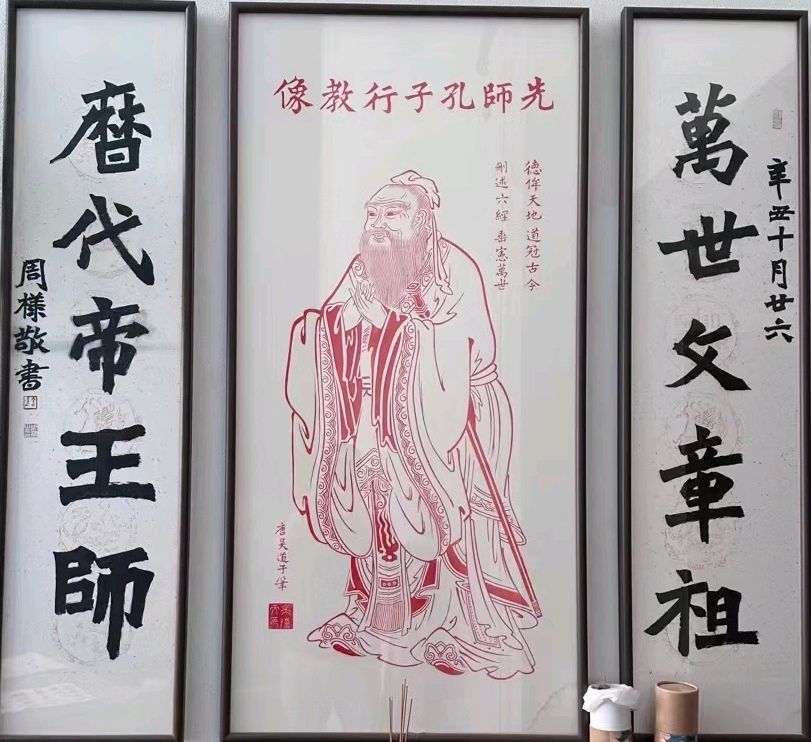 先師孔子行教像
德侔天地 道冠古今
刪述六經 垂憲萬世
唐吴道子筆
辛丑十月廿六
萬世文章祖
曆代帝王師
周樣敬書